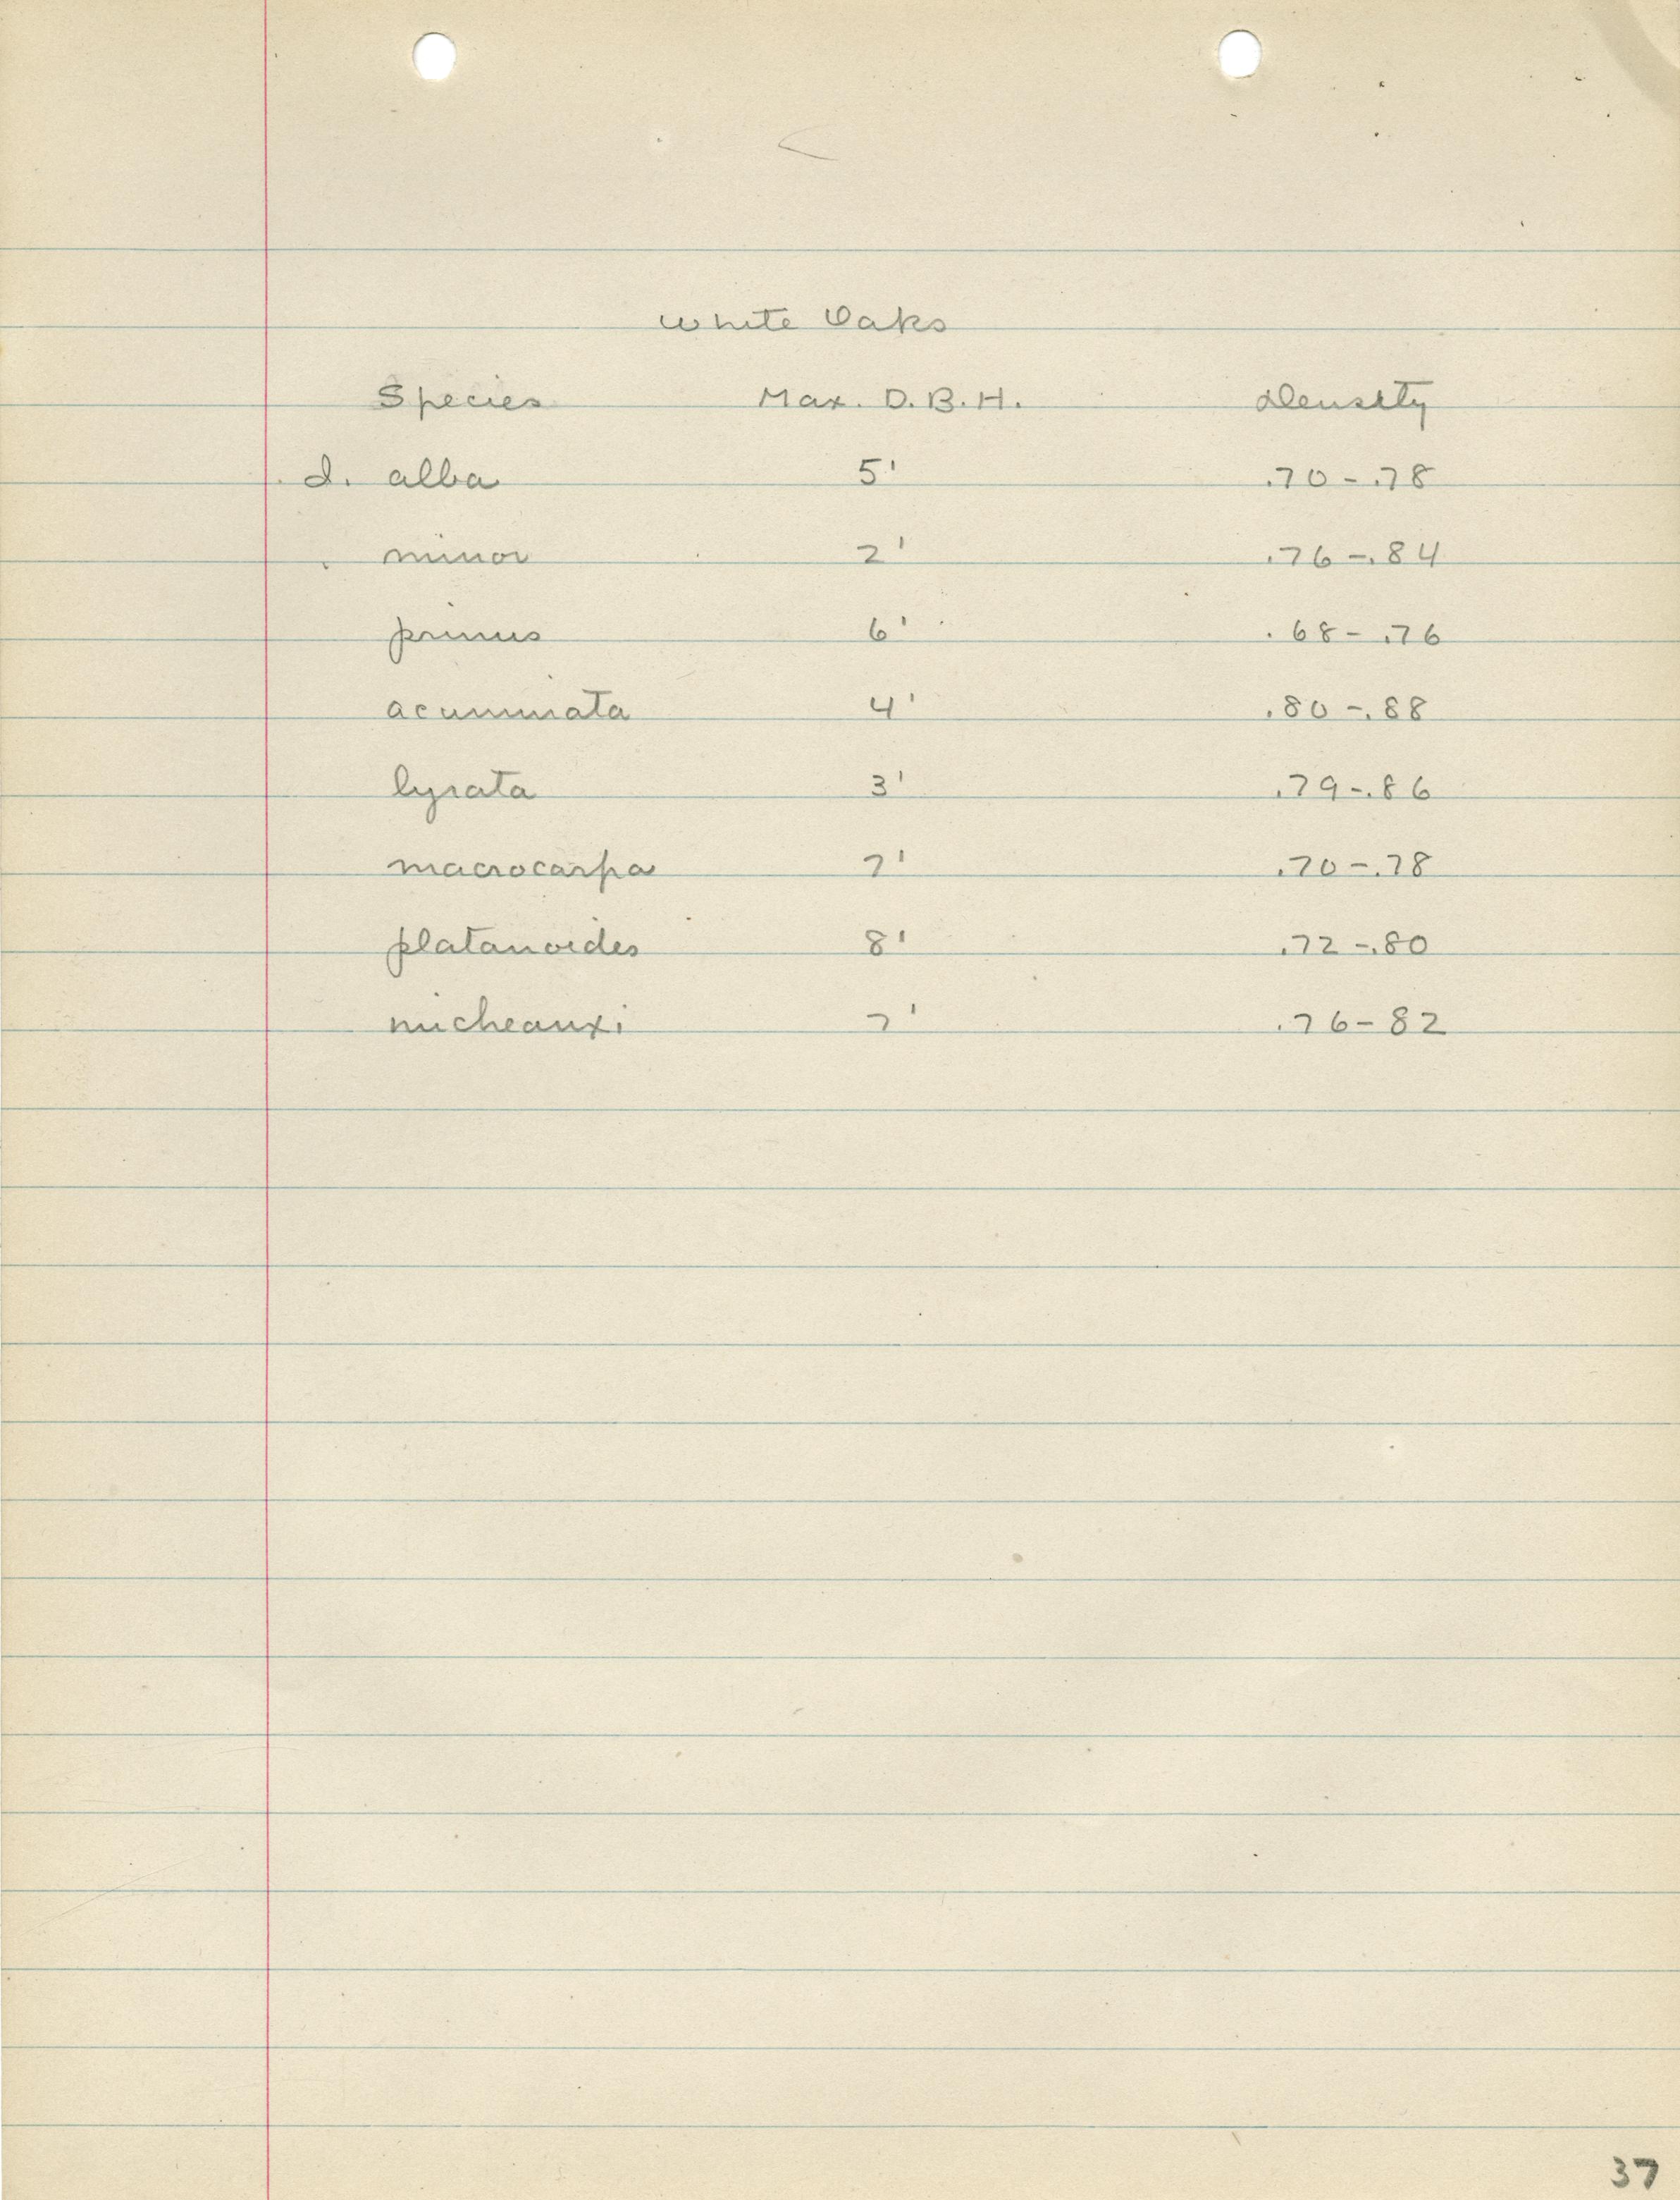 White Oaks
Species Max. D.B.H. Density
Q. alba 5' .70-.78
minor 2' .76-.84
prinus 6' .68-.76
acuminata 4' .80-.88
lyrata 3' .79-.86
macrocarpa 7' .70-.78
platanoides 8' .72-.80
micheauxi 7' .76-82
37